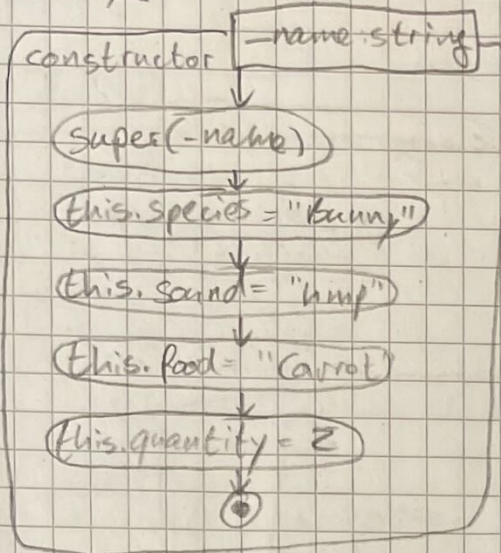 _name:string
constructor
super(_name)
this.species = "Bunny"
this.sound= "hmp"
this.food= "Carrot
this.quantity = 2